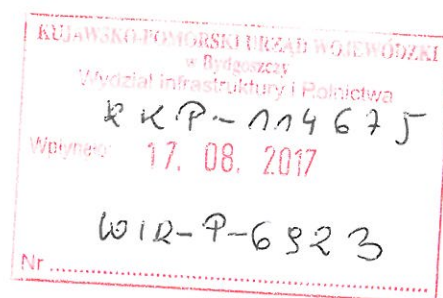 KUJAWSKO-POMORSKI URZĄD WOJEWÓDZKI
w Bydgoszczy
Wydział Infrastruktury i Rolnictwa
RKP-114675
Wpłynęło 17. 08. 2017
WIR-P-6923
Nr ..........